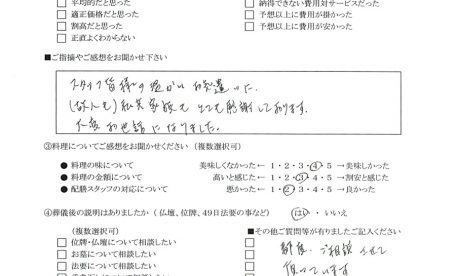 □ 平均的だと思った　□ 納得できない費用対サービスだった
□ 適正価格だと思った　□ 予想以上に費用が掛かった
□ 割高だと思った　□ 予想以上に費用が安かった
□ 正直よくわからない
■ご指摘やご感想をお聞かせ下さい
スタッフ皆様の温かい お気遣いに、
(故人も) 私共家族も とても感謝しております。
大変お世話になりました。
③料理についてご感想をお聞かせください（複数選択可）
● 料理の味について　美味しくなかった← 1・2・3・4・5 →美味しかった
● 料理の金額について　高いと感じた← 1・2・3・4・5 →割安と感じた
● 配膳スタッフの対応について　悪かった← 1・2・3・4・5 →良かった
④葬儀後の説明はありましたか（仏壇、位牌、49日法要の事など）　はい ・ いいえ
（複数選択可）　■その他ご質問等が有りましたご記入ください
□ 位牌・仏壇について相談したい
□ お墓について相談したい　都度、ご相談 させて
□ 法要について相談したい　頂いています